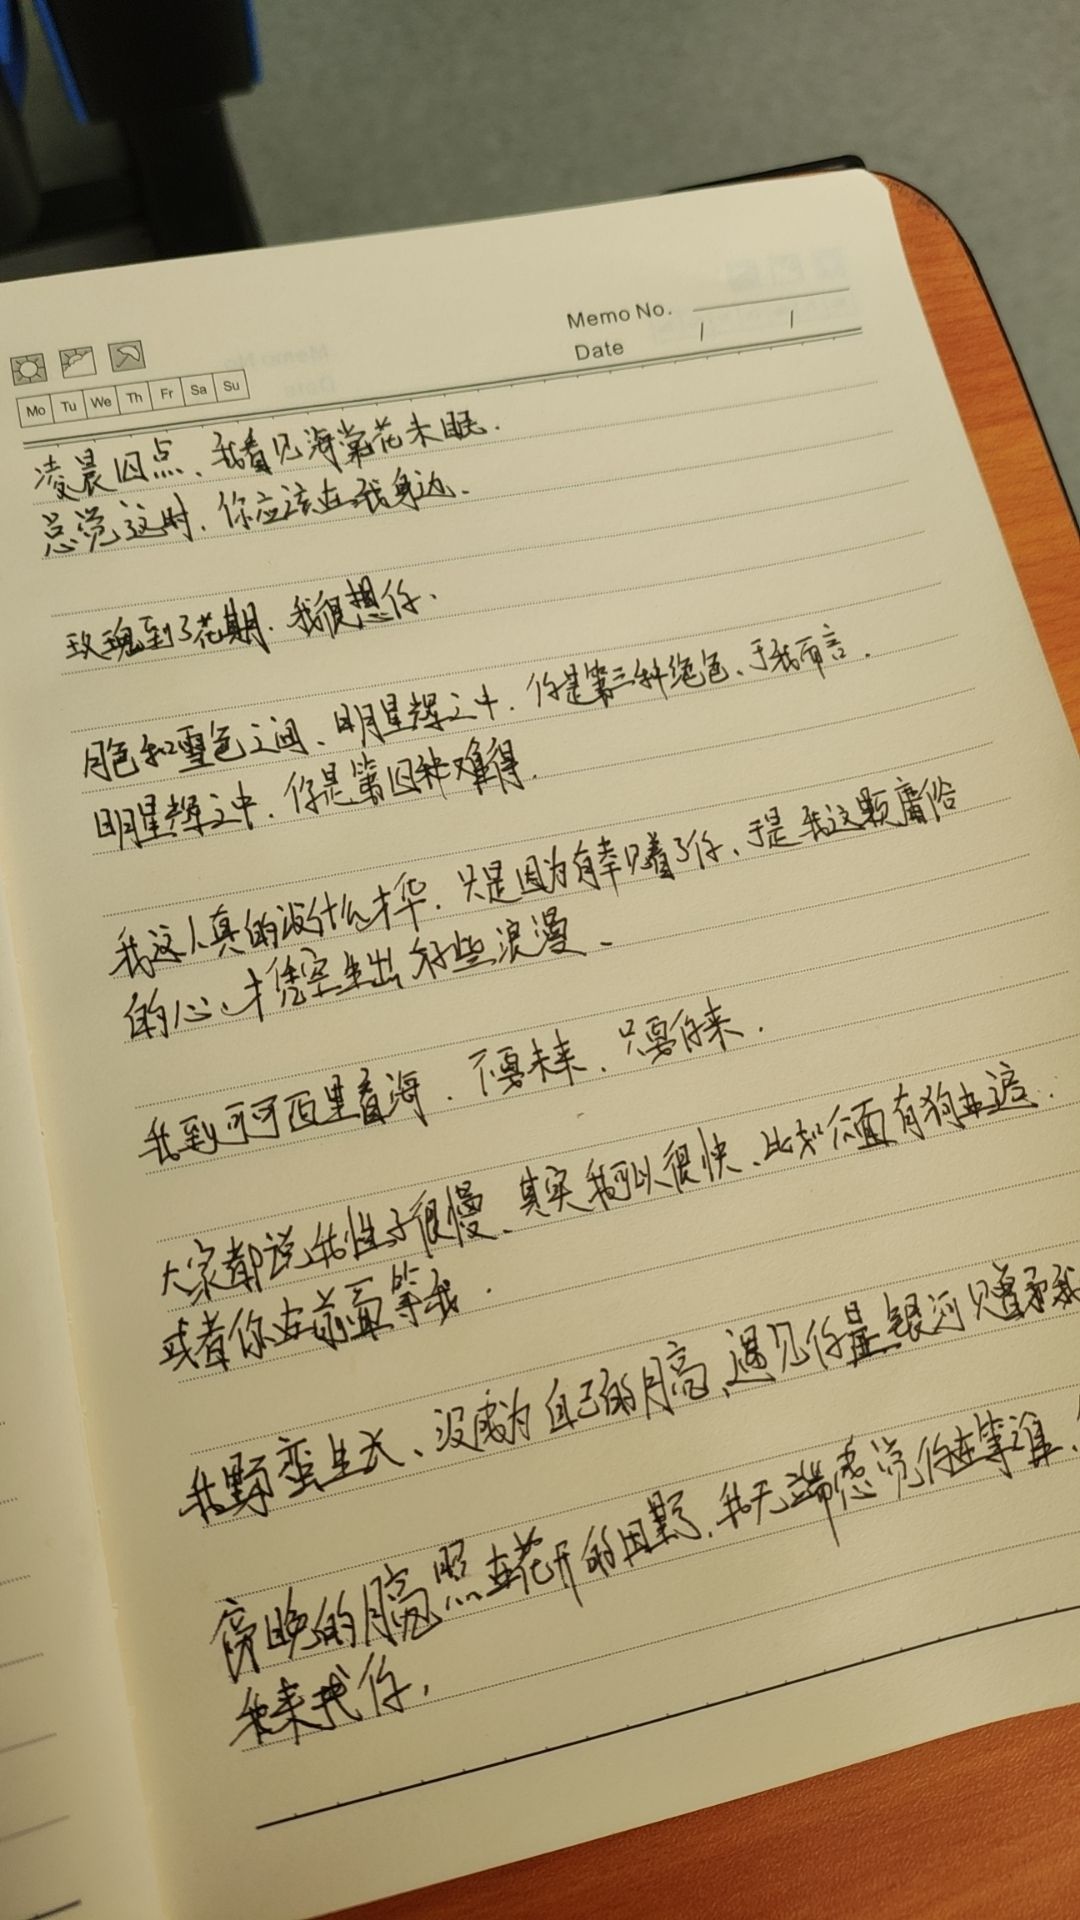 Memo No.
Date / /
Mo Tu We Th Fr Sa Su
凌晨四点、我看见海棠花未眠.
总觉这时.你应该在我身边.
玫瑰到了花期.我很想你.
月色和雪色之间、明月星辉之中.你是第三种绝色、于我而言.
明月星辉之中.你是第四种难得.
我这人真的没什么才华.只是因为有幸见着了你、于是我这颗庸俗
的心、才凭空生出好些浪漫、
我到可可西里看海.不要未来.只要你来.
大家都说我性子很慢、其实我可以很快、比如后面有狗在追.
或者你在前面等我.
我野蛮生长、没成为自己的月亮、遇见你是银河赠予我
傍晚的月亮照在花开的田野.我无端感觉你在等谁、
我来找你.